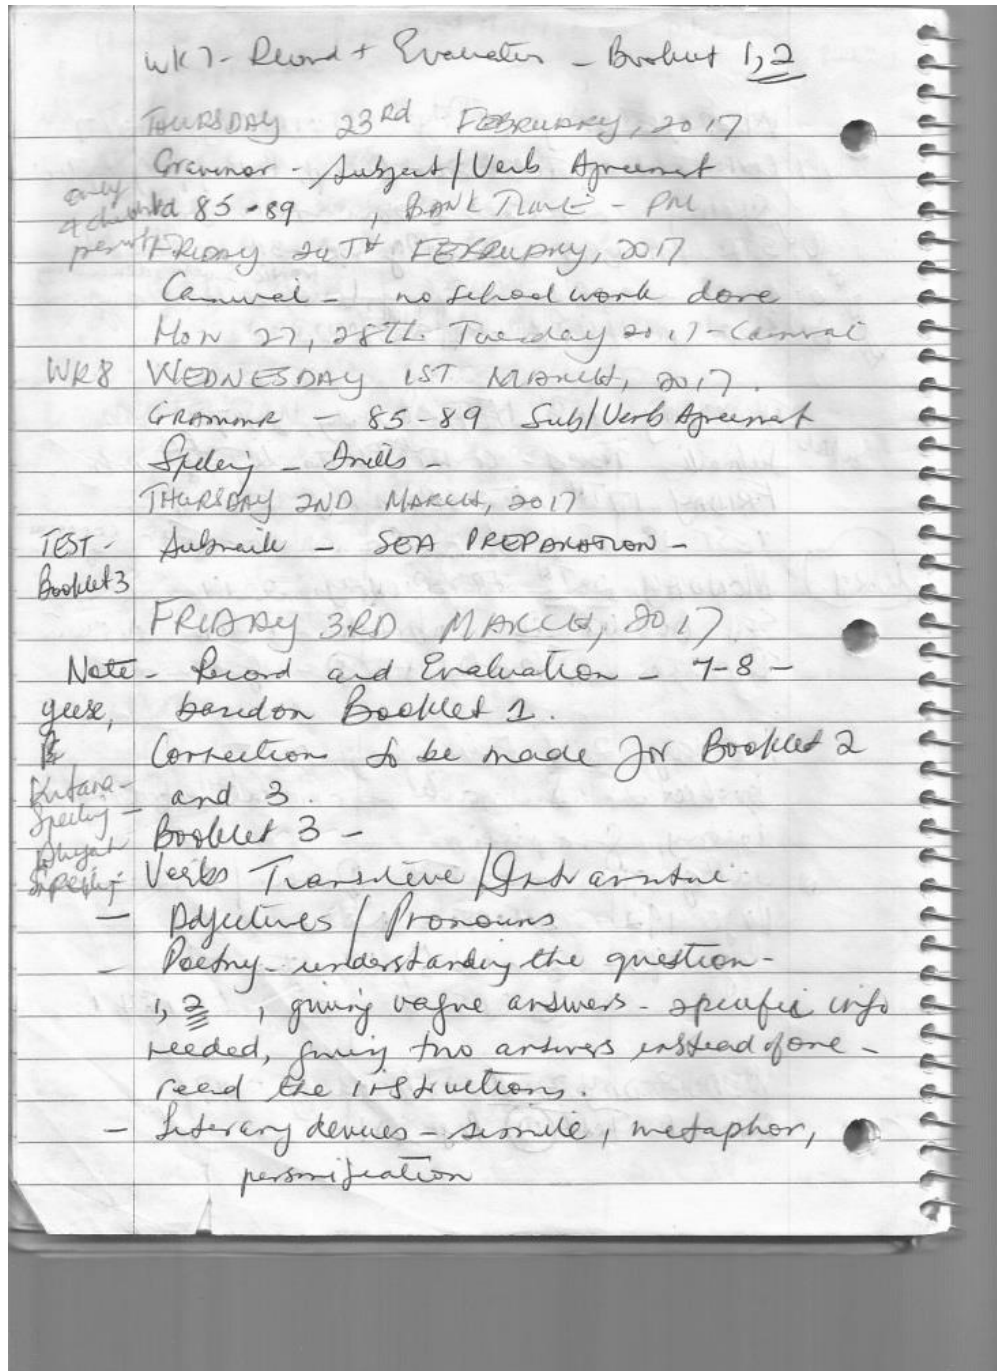 WK 7 - Record + Evaluation - Booklet 1, 2
THURSDAY 23Rd FEBRUARY, 2017
Grammar - Subject/Verb Agreement
only
4 children
present
85-89 , BANK TIME - PM
FRIDAY 24TH FEBRUARY, 2017
Carnival - no school work done
Mon 27, 28TH Tuesday 2017 - Carnival
WK8 WEDNESDAY 1ST MARCH, 2017.
GRAMMAR - 85-89 Sub/Verb Agreement
Spelling - Drills -
THURSDAY 2ND MARCH, 2017
TEST - - SEA PREPARATION -
Booklet 3
FRIDAY 3RD MARCH, 2017
Note - Record and Evaluation - 7-8 -
based on Booklet 1.
Corrections to be made for Booklet 2
and 3.
Spelling -
Booklet 3 -
Verbs Transitive/Intransitive
- Adjectives / Pronouns
- Poetry - understanding the question -
1, 2 , giving vague answers - specific info
needed, giving two answers instead of one -
read the instructions.
- Literary devices - simile, metaphor,
personification